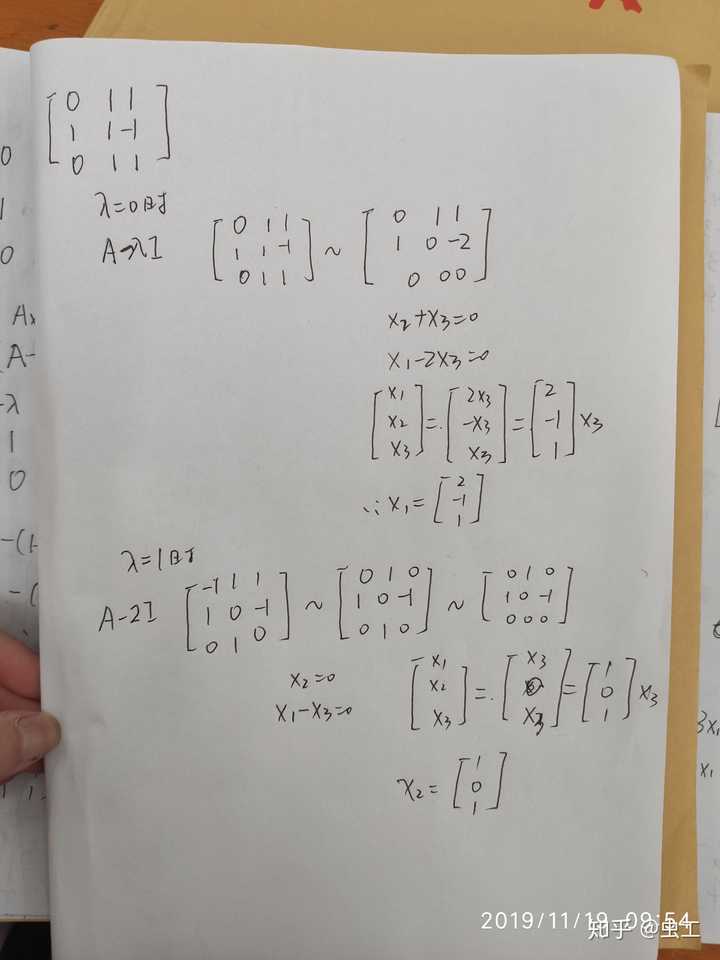 [0 1 1
1 1 -1
0 1 1]
λ=0时
A-λI [0 1 1
1 1 -1
0 1 1] ~ [0 1 1
1 0 -2
0 0 0]
x₂+x₃=0
x₁-2x₃=0
[x₁
x₂
x₃] = [2x₃
-x₃
x₃] = [2
-1
1] x₃
∴ x₁ = [2
-1
1]
λ=1时
A-2I [-1 1 1
1 0 -1
0 1 0] ~ [0 1 0
1 0 -1
0 1 0] ~ [0 1 0
1 0 -1
0 0 0]
x₂=0
x₁-x₃=0
[x₁
x₂
x₃] = [x₃
0
x₃] = [1
0
1] x₃
x₂ = [1
0
1]
0
1
0
A-
-λ
1
0
3x₁
x₁
2019/11/19 09:54
知乎 @虫工